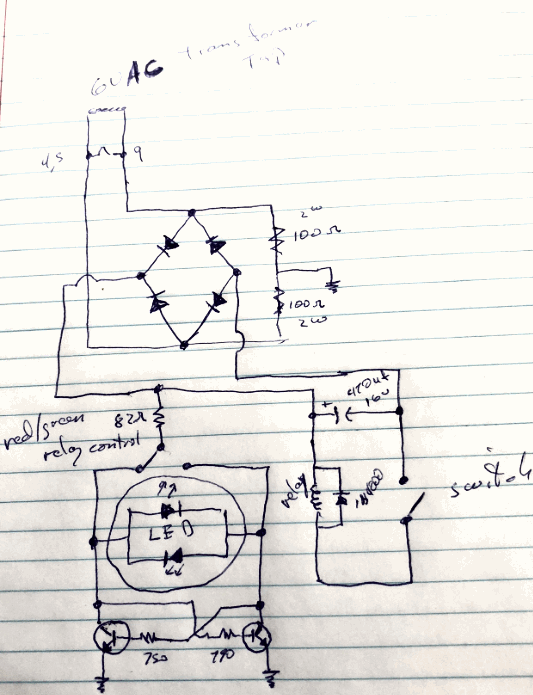 6VAC transformer
Tap
4,5
9
2w
100Ω
100Ω
2w
470uf
16v
+
82Ω
red/green
relay control
relay
switch
LED
750
750